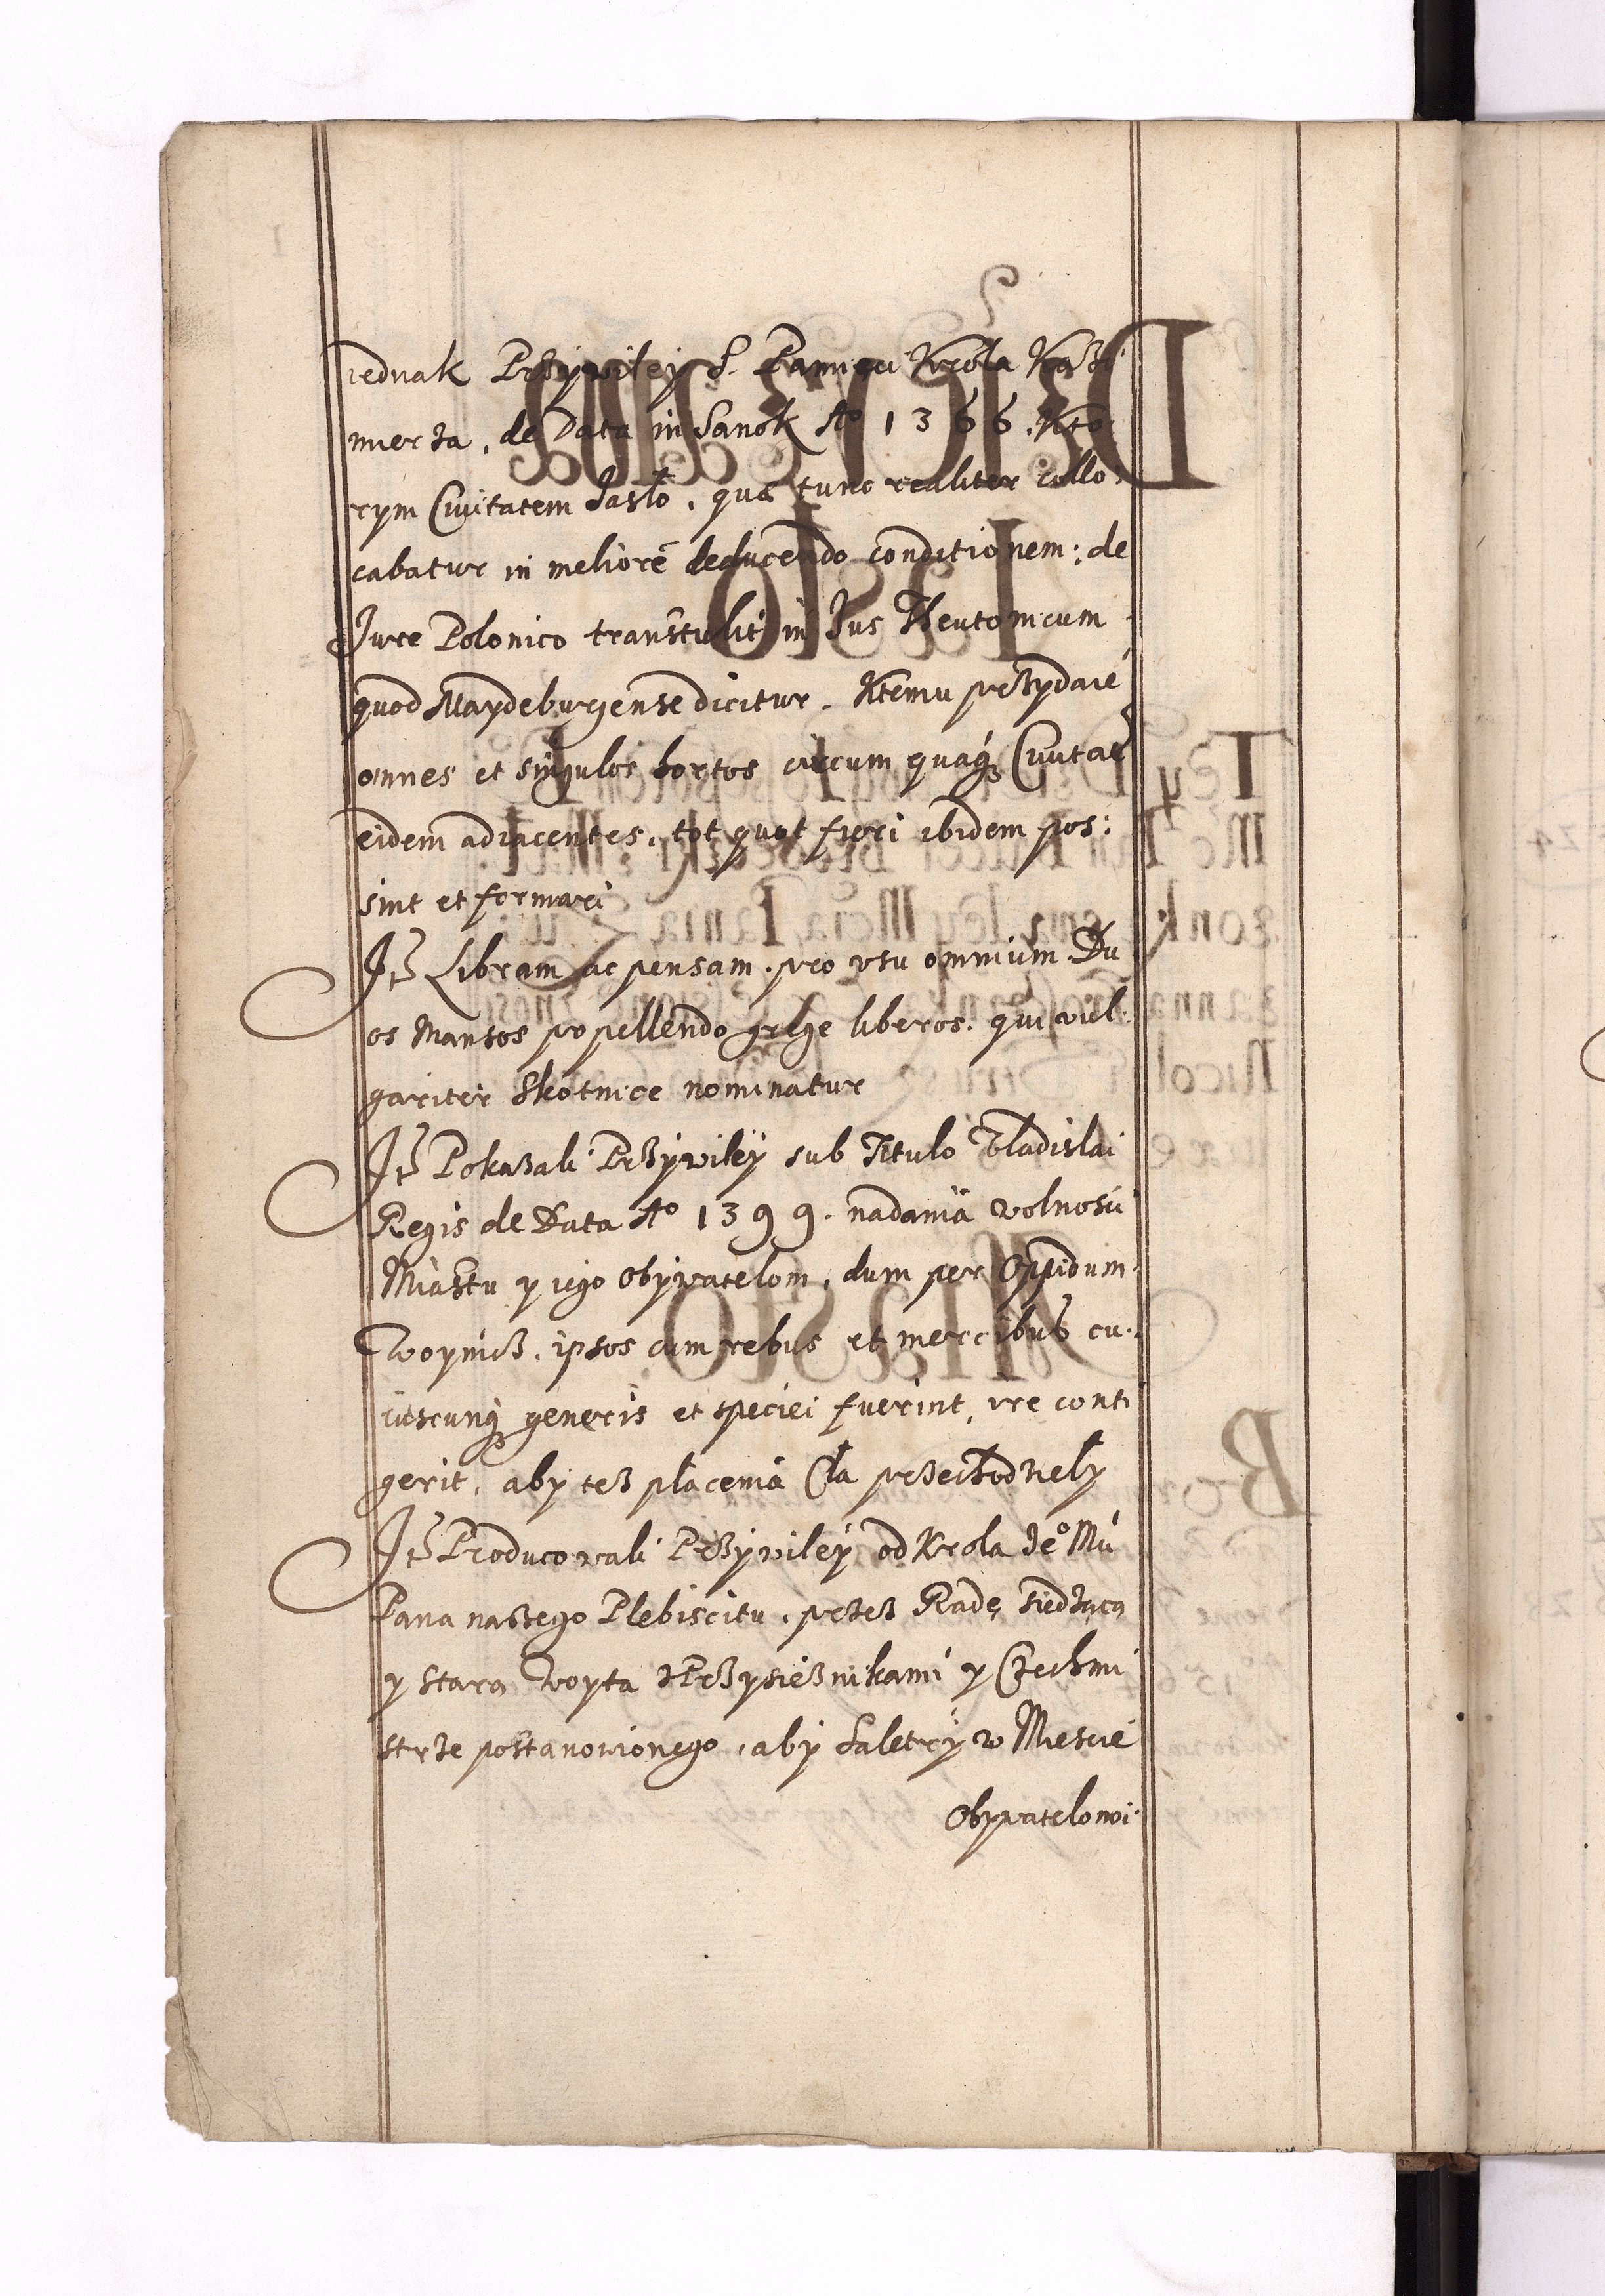 iednak Przÿwiley S. Pamięci Krola Kazi
mierza, de Data in Sanok Aº 1366. Kto
rym Ciuitatem Jasło, quæ tunc realiter collo
cabatur in meliorē deducendo conditionem: de
Jure Polonico transtulit in Jus Theutonicum
quod Maydeburgense dicitur. Ktemu przydaie
omnes et singulos hortos circum quaq; Ciuitati
eidem adiacentes, tot quot fieri ibidem pos:
sint et formari
Itē Libram ac pensam, pro vsu omnium Du
os Mansos pro pellendo grege liberos, qui vul:
gariter Skotnice nominatur
Itē Pokazali Przÿwilëÿ sub Titulo Vładislai
Regis de Data Aº 1399. nadania wolnosci
Miastu y iego Obÿwatelom, dum per Oppidum
Woynicz, ipsos cum rebus et mercibus cu:
iuscunq; generis et speciei fuerint, ire conti
gerit, aby tez płacenia Cła przechodzieły
Itē Producowali Przÿwiley od Krola Jeº Mci
Pana naszego Plebiscitu, przez Radę siedzącą
y starą Woyta z Przysięznikami y Czechmi
strze postanowionego, abÿ Saletrÿ w Miescie
Obÿwatelowi